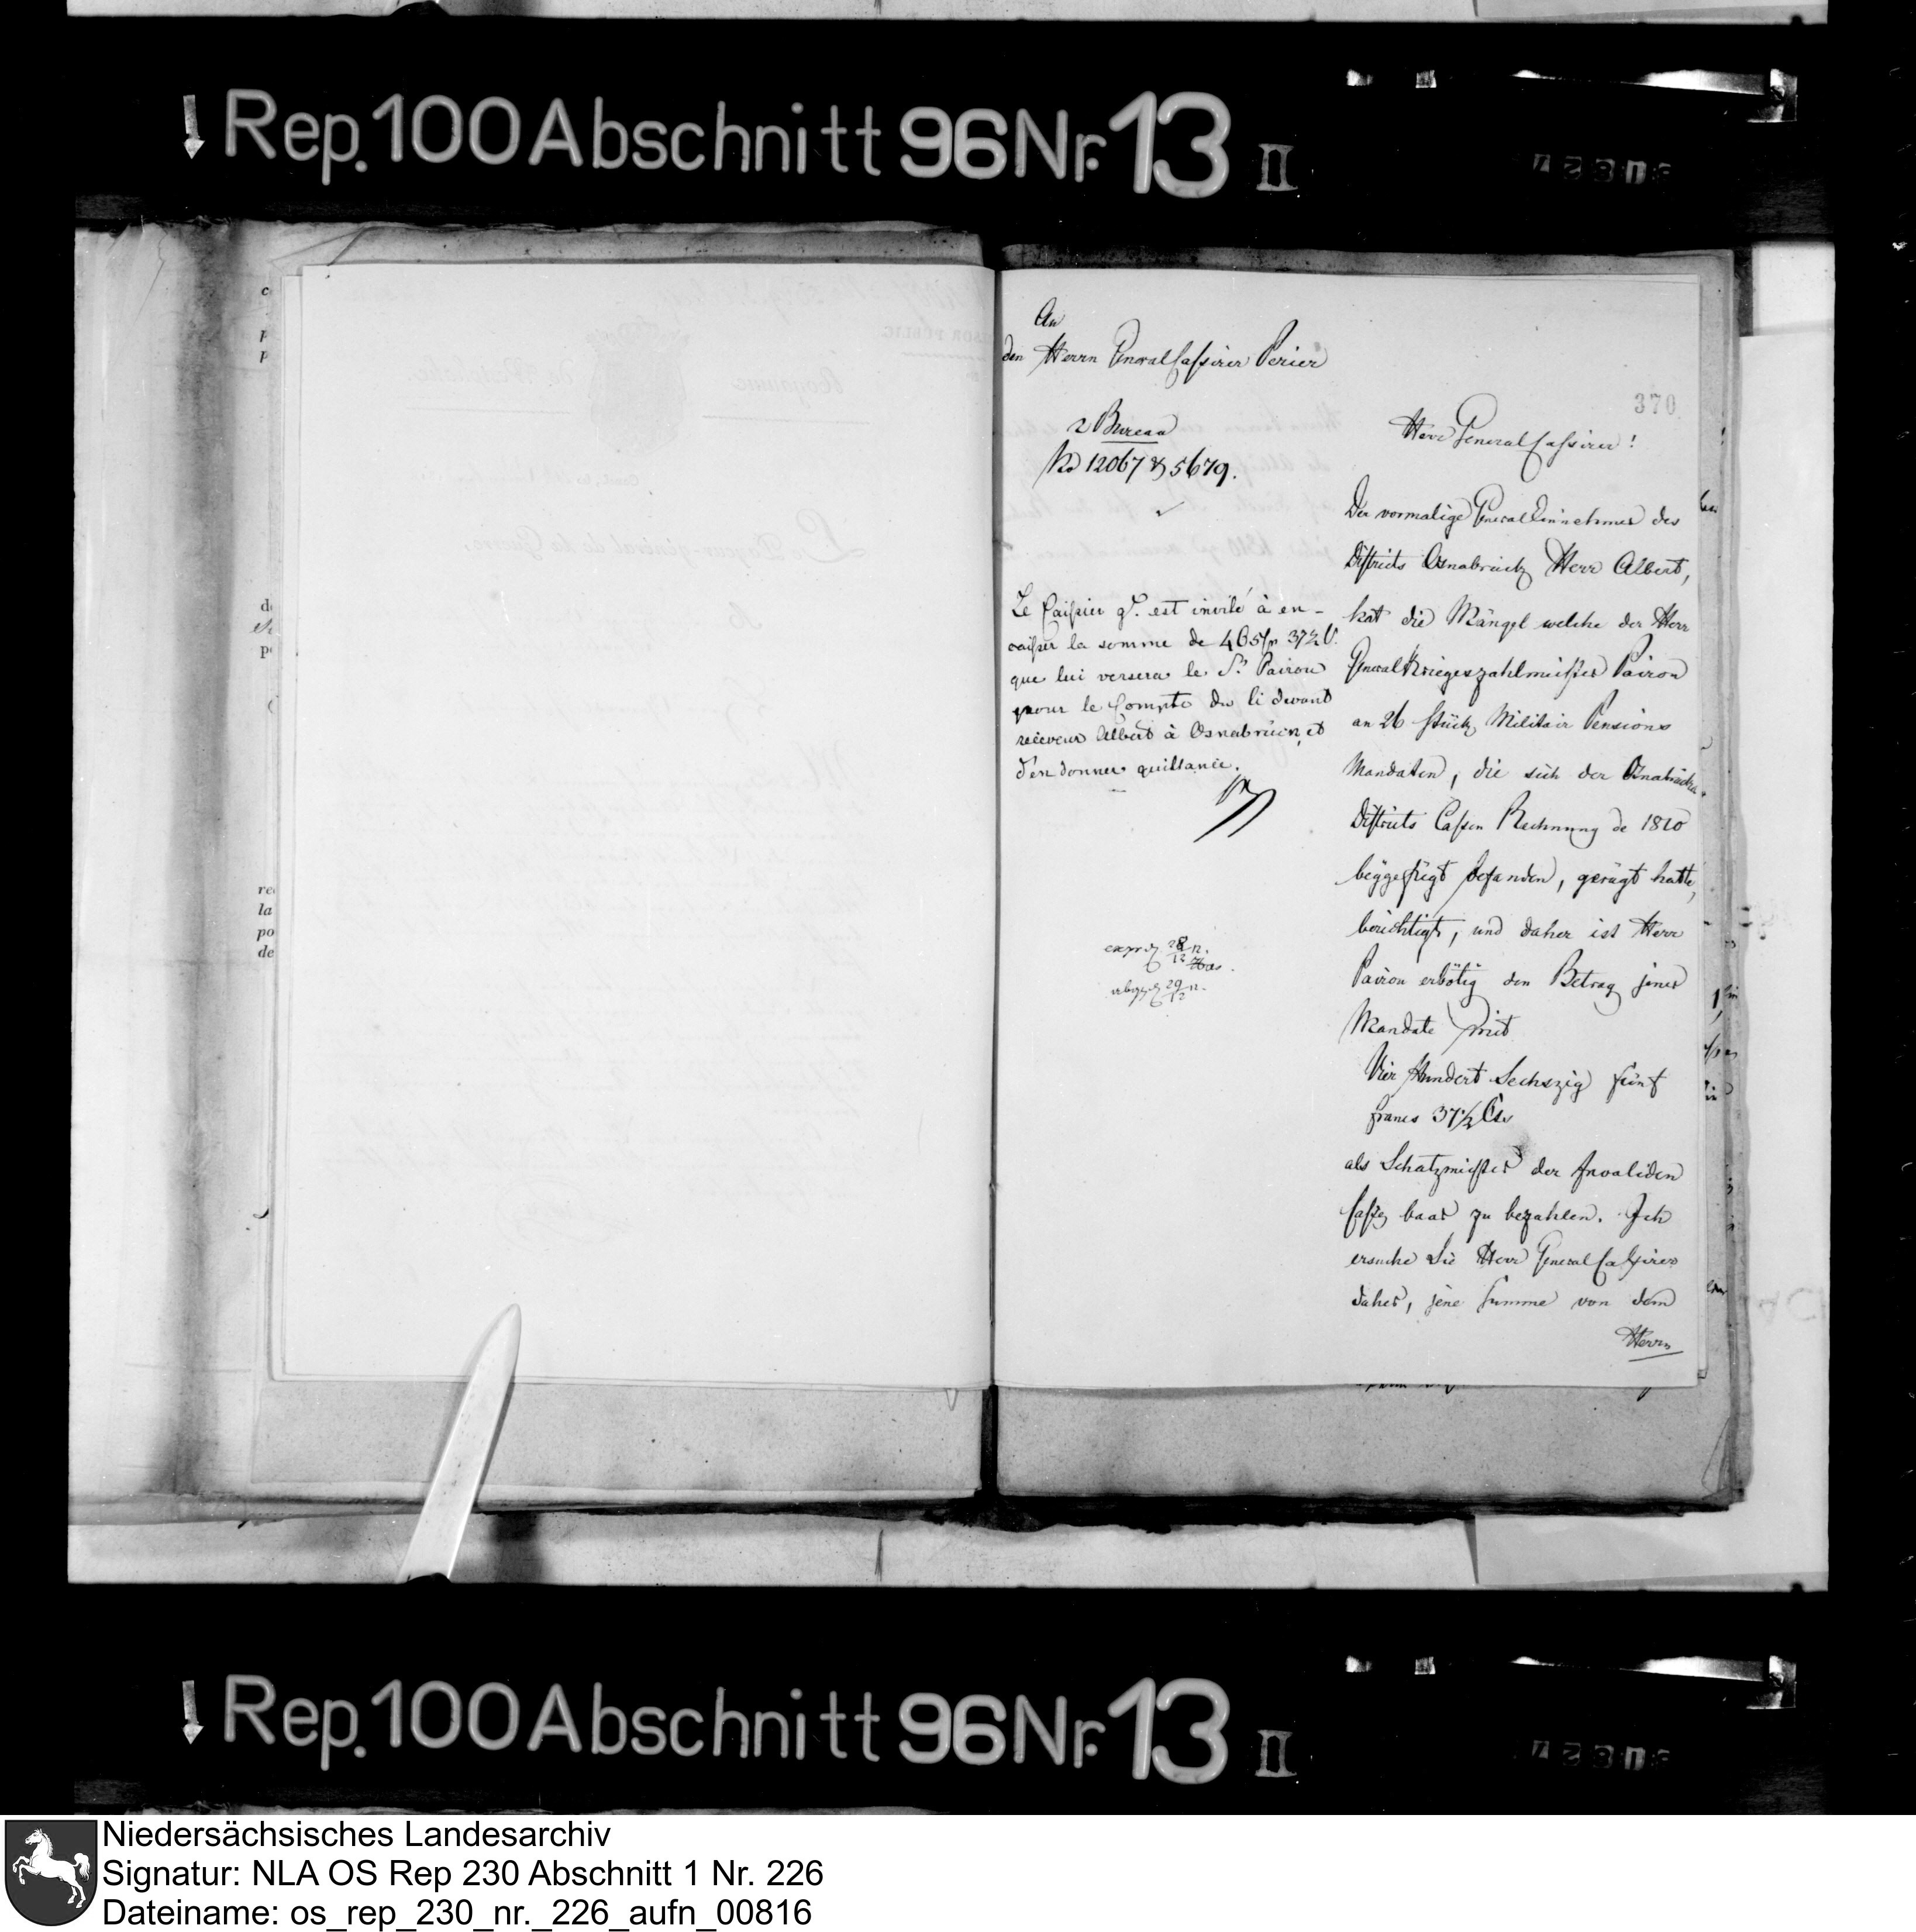 Rep. 100 Abschnitt 96 Nr. 13 II
An
den Herrn General Cassirer Perier
2 Bureau
No 12067 & 5679.
370
Herr General Cassirer!
Le Caissier gl. est invité à en-
caisser la somme de 465 fr 37½ C.
que lui versera le Sr. Pairon
pour le Compte du Ci devant
receveur Albert à Osnabrück, et
d'en donner quittance.
28/12
29/12
Der vormalige General Einnehmer des
Districts Osnabrück Herr Albert,
hat die Mängel welche der Herr
General Kriegeszahlmeister Pairon
an 26 Stück Militair Pensions
Mandaten, die sich der Osnabrücker
Districts Cassen Rechnung de 1810
beygefügt befanden, gerügt hatte,
berichtigt, und daher ist Herr
Pairon erbötig den Betrag jener
Mandate mit
Vier Hundert Sechszig fünf
francs 37½ Cs
als Schatzmeister der Invaliden
Casse baar zu bezahlen. Ich
ersuche Sie Herr General Cassirer
daher, jene Summe von dem
Herrn
Rep. 100 Abschnitt 96 Nr. 13 II
Niedersächsisches Landesarchiv
Signatur: NLA OS Rep 230 Abschnitt 1 Nr. 226
Dateiname: os_rep_230_nr._226_aufn_00816